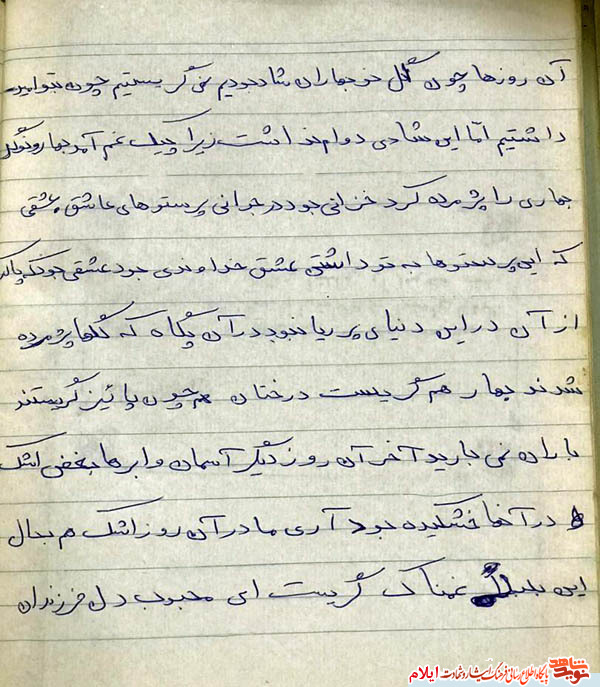 آن روزها چون گل نوبهاران شاد بودیم نمی گریستیم چون تو را
داشتیم امّا این شادی دوام نداشت زیرا پیک غم آمد بهار و گلهای
بهاری را پژمرده کرد خزانی بود در جوانی پرستوهای عاشق، عشقی
که این پرستوها به تو داشتن عشق خداوندی بود عشقی بود که پاکتر
از آن در این دنیای پر ریا نبود در آن پگاه که گلها پژمرده
شدند بهار هم گریست درختان هم چون پائیز گریستند
باران نمی بارید آخر آن روز دیگر آسمان و ابرها بغض اشک
در آنها خشکیده بود آری مادر آن روز اشک هم بحال
این غمناک گریست ای محبوب دل فرزندان
نوید شاهد
پایگاه اطلاع رسانی فرهنگ ایثار و شهادت ایلام